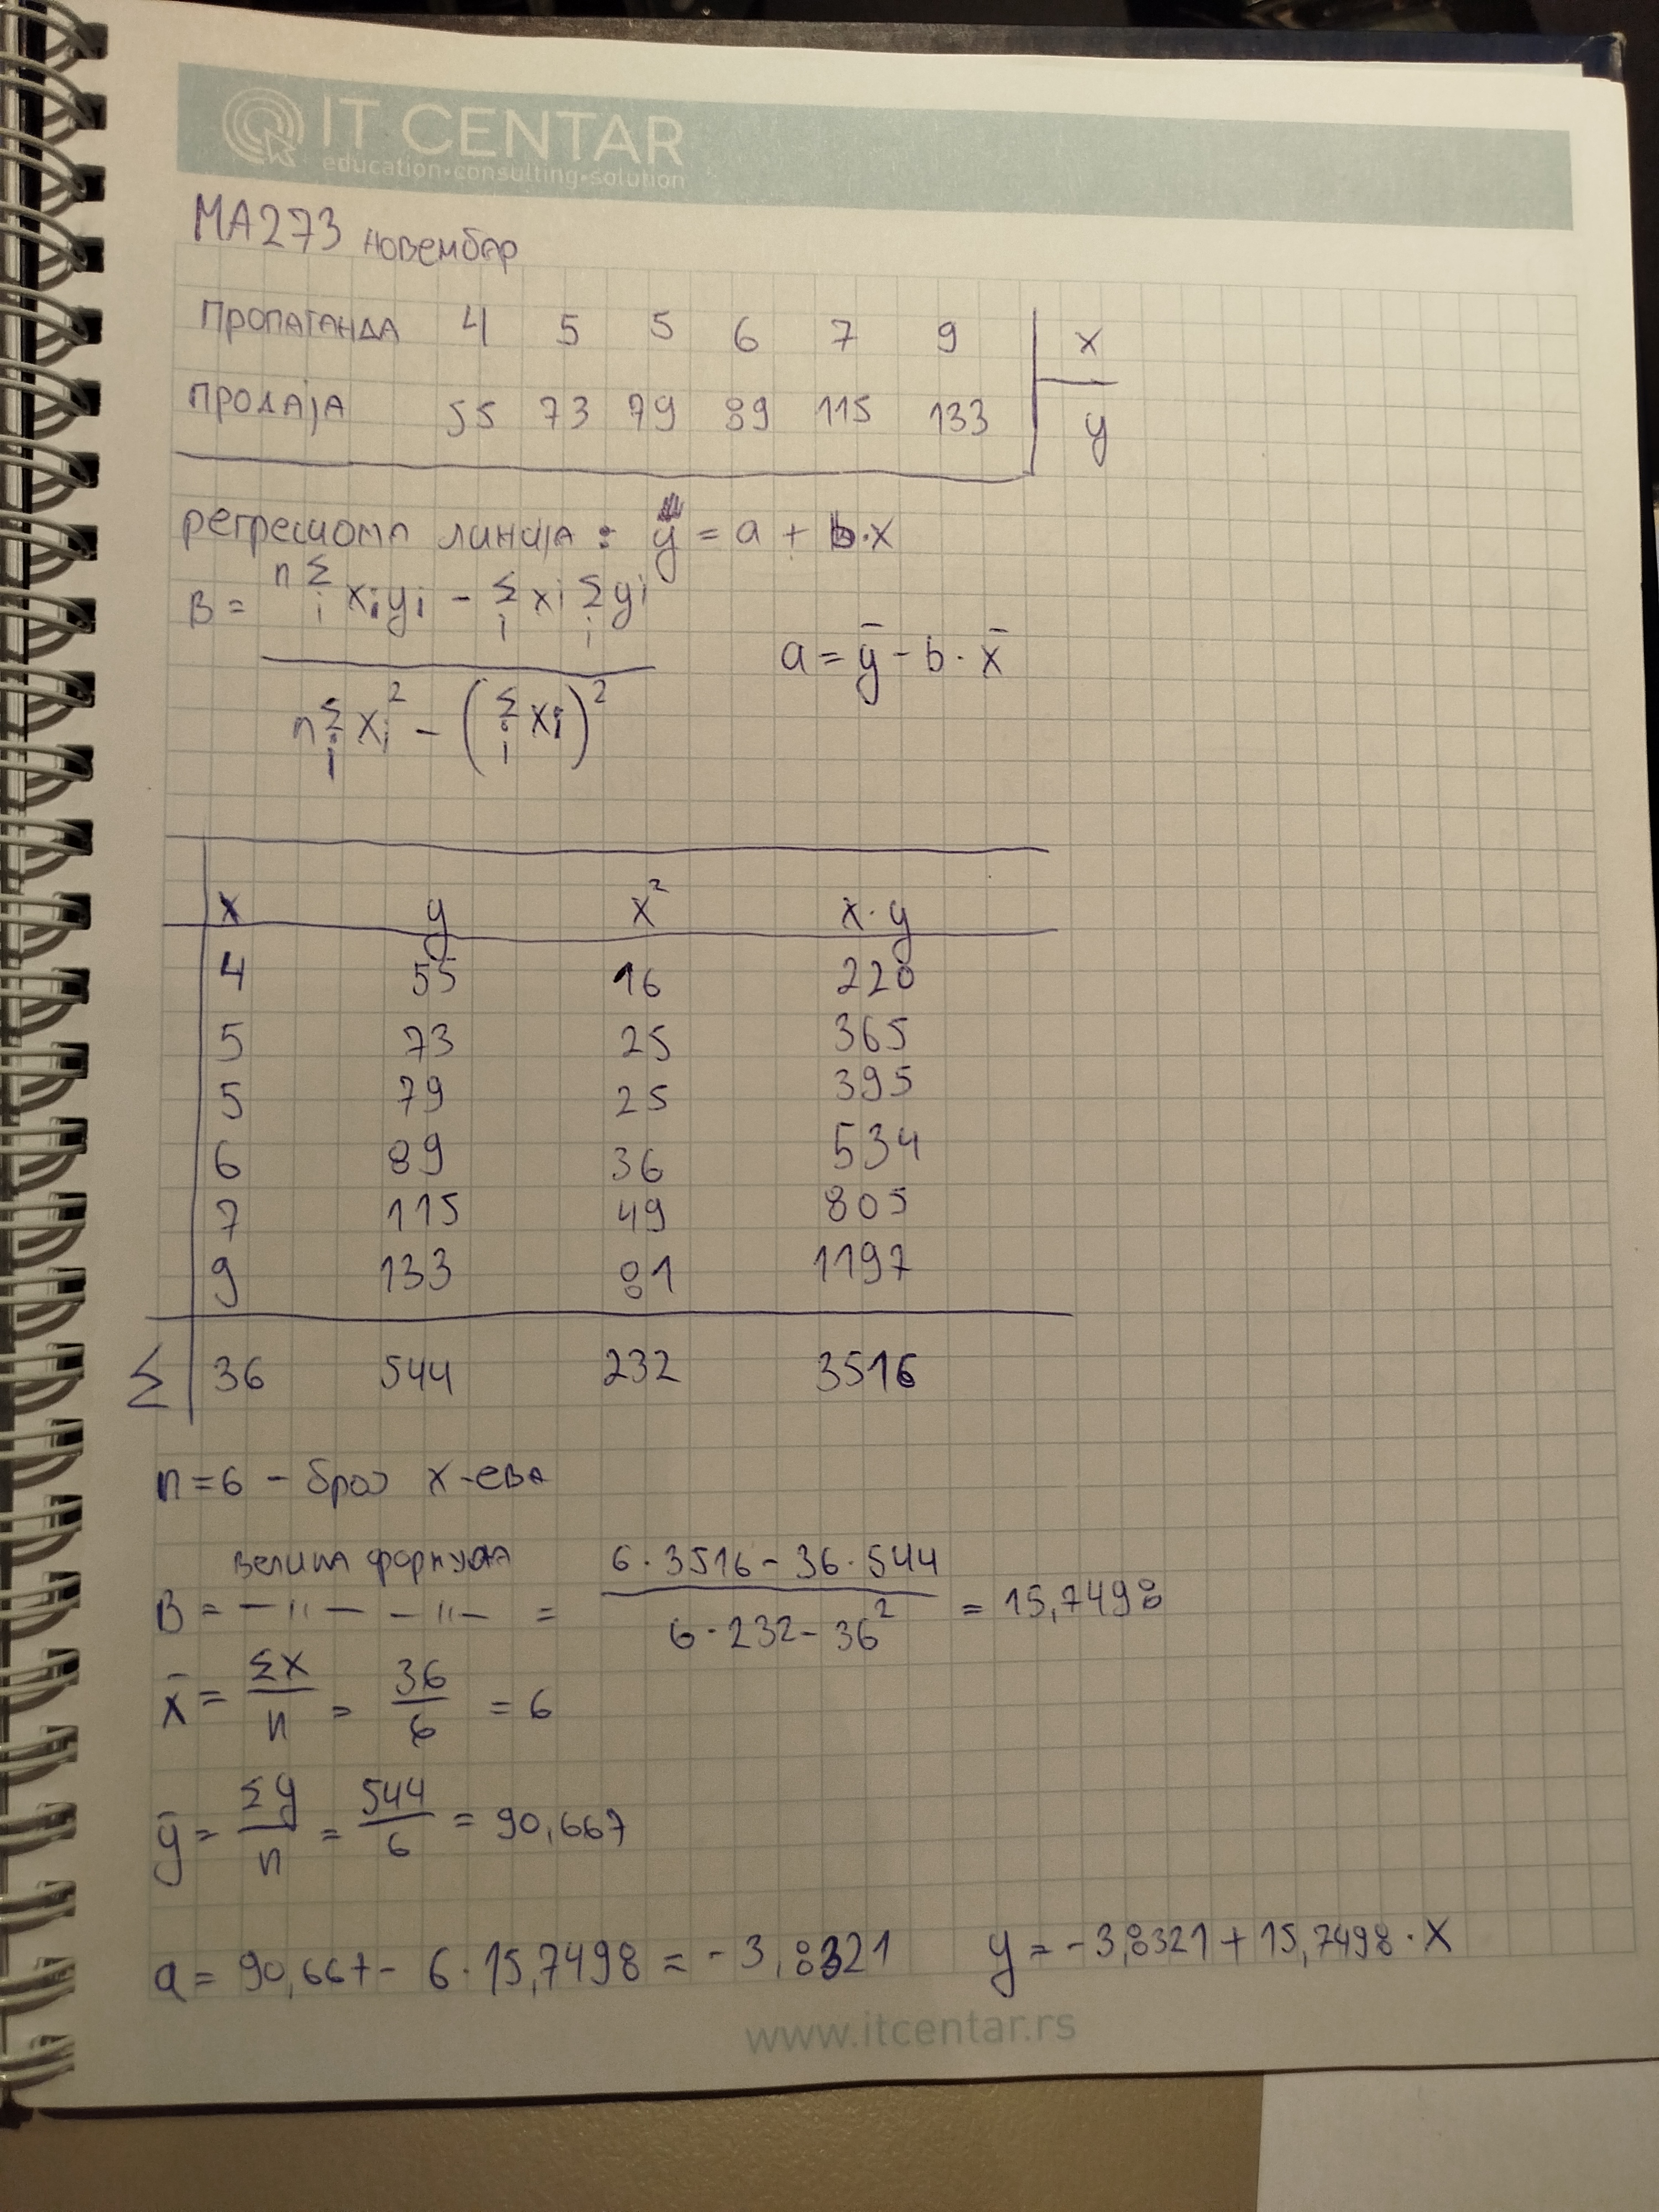 IT CENTAR
education•consulting•solution
МА273 новембар
Пропаганда 4 5 5 6 7 9 x
продаја 55 73 79 89 115 133 y
регресиона линија : y = a + b·x
B = (n Σi xi yi − Σi xi Σi yi) / (n Σi xi² − (Σi xi)²)
a = ȳ − b · x̄
x y x² x·y
4 55 16 220
5 73 25 365
5 79 25 395
6 89 36 534
7 115 49 805
9 133 81 1197
Σ 36 544 232 3516
n=6 – број x-ева
велика формула
B = —॥— —॥— = (6·3516 − 36·544) / (6·232 − 36²) = 15,7498
x̄ = Σx / n = 36 / 6 = 6
ȳ = Σy / n = 544 / 6 = 90,667
a = 90,667 − 6·15,7498 = −3,8321 y = −3,8321 + 15,7498·x
www.itcentar.rs